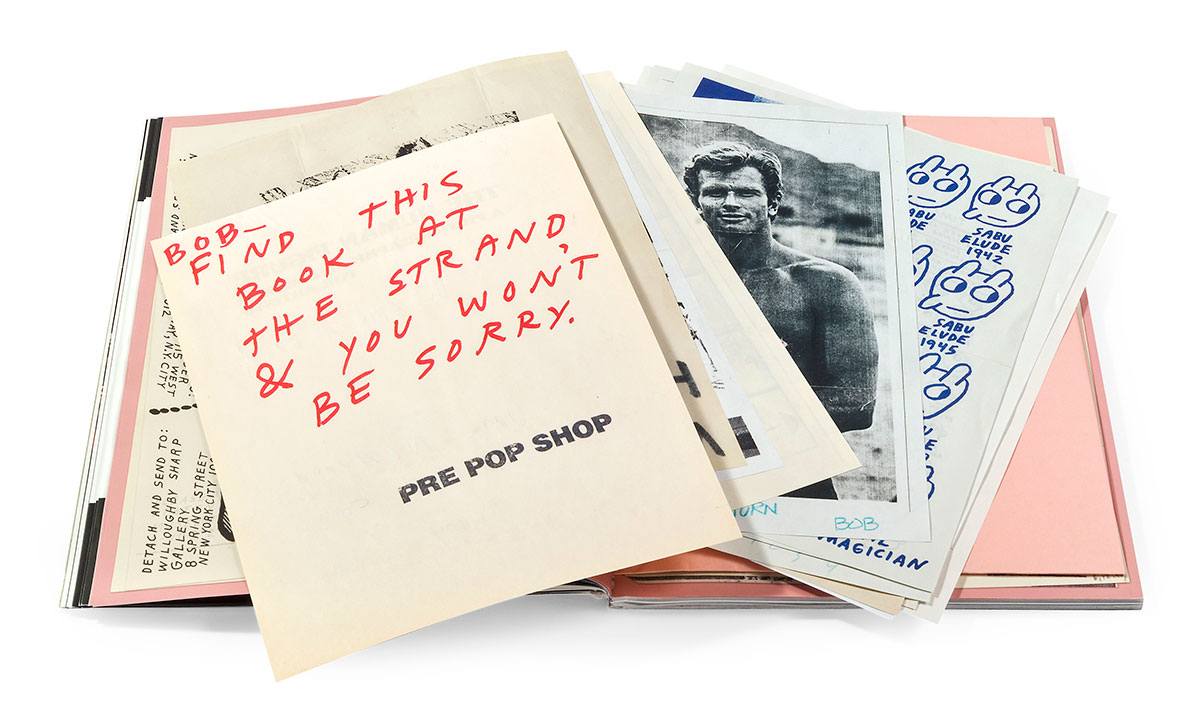 BOB—
FIND THIS
BOOK AT
THE STRAND,
& YOU WON'T
BE SORRY.
PRE POP SHOP
DETACH AND SEND TO:
WILLOUGHBY SHARP
GALLERY
8 SPRING STREET
NEW YORK CITY
115 WEST
N.Y. CITY
BOB
MAGICIAN
SABU
SABU
ELUDE
1942
SABU
ELUDE
1945